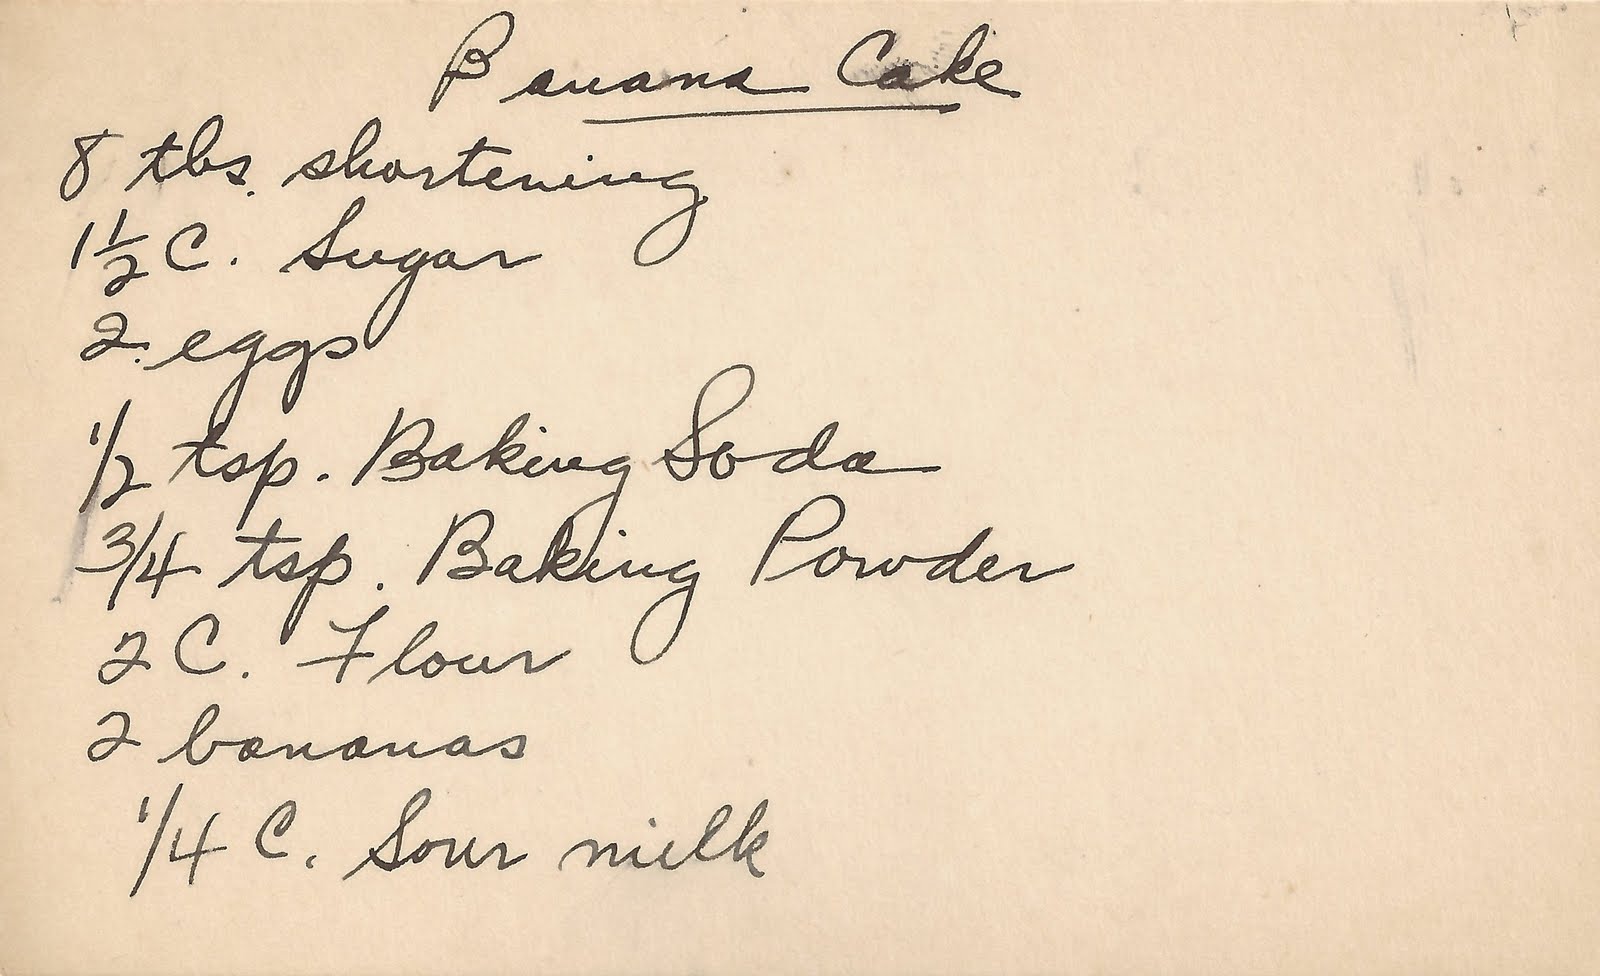 Banana Cake
8 tbs. shortening
1 1/2 C. Sugar
2 eggs
1/2 tsp. Baking Soda
3/4 tsp. Baking Powder
2 C. Flour
2 bananas
1/4 C. Sour milk